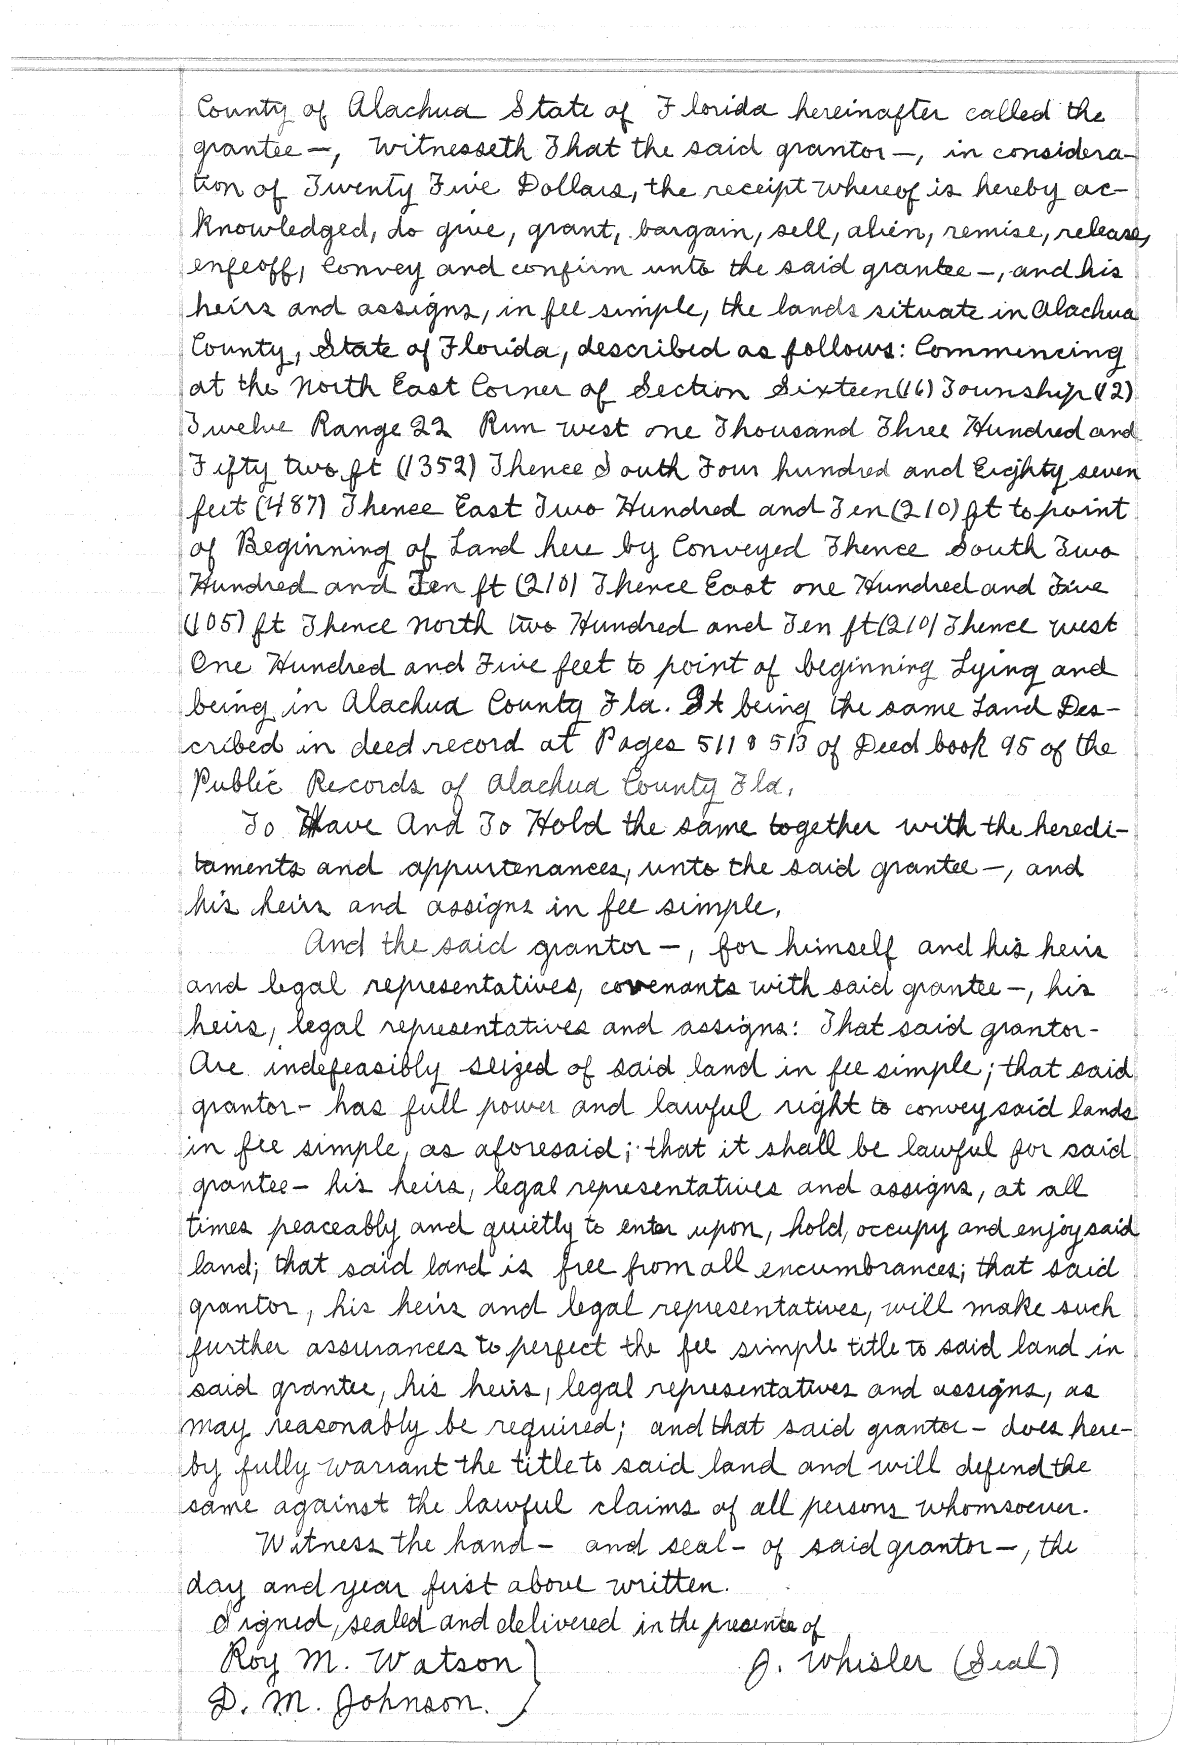 County of Alachua State of Florida hereinafter called the
grantee—, Witnesseth That the said grantor—, in considera-
tion of Twenty Five Dollars, the receipt whereof is hereby ac-
knowledged, do give, grant, bargain, sell, alien, remise, release,
enfeoff, Convey and confirm unto the said grantee—, and his
heirs and assigns, in fee simple, the lands situate in Alachua
County, State of Florida, described as follows: Commencing
at the North East Corner of Section Sixteen (16) Township (12)
Twelve Range 22 Run west one Thousand Three Hundred and
Fifty two ft (1352) Thence South Four hundred and Eighty seven
feet (487) Thence East Two Hundred and Ten (210) ft to point
of Beginning of Land here by Conveyed Thence South Two
Hundred and Ten ft (210) Thence East one Hundred and Five
(105) ft Thence North two Hundred and Ten ft (210) Thence west
One Hundred and Five feet to point of beginning Lying and
being in Alachua County Fla. It being the same Land Des-
cribed in deed record at Pages 511 & 513 of Deed book 95 of the
Public Records of Alachua County Fla.
To Have And To Hold the same together with the heredi-
taments and appurtenances, unto the said grantee—, and
his heirs and assigns in fee simple.
And the said grantor—, for himself and his heirs
and legal representatives, covenants with said grantee—, his
heirs, legal representatives and assigns: That said grantor-
Are indefeasibly seized of said land in fee simple; that said
grantor- has full power and lawful right to convey said lands
in fee simple, as aforesaid; that it shall be lawful for said
grantee- his heirs, legal representatives and assigns, at all
times peaceably and quietly to enter upon, hold, occupy and enjoy said
land; that said land is free from all encumbrances; that said
grantor, his heirs and legal representatives, will make such
further assurances to perfect the fee simple title to said land in
said grantee, his heirs, legal representatives and assigns, as
may reasonably be required; and that said grantor- does here-
by fully warrant the title to said land and will defend the
same against the lawful claims of all persons whomsoever.
Witness the hand- and seal- of said grantor—, the
day and year first above written.
Signed, sealed and delivered in the presence of
Roy M. Watson } J. Whisler (Seal)
D. M. Johnson.